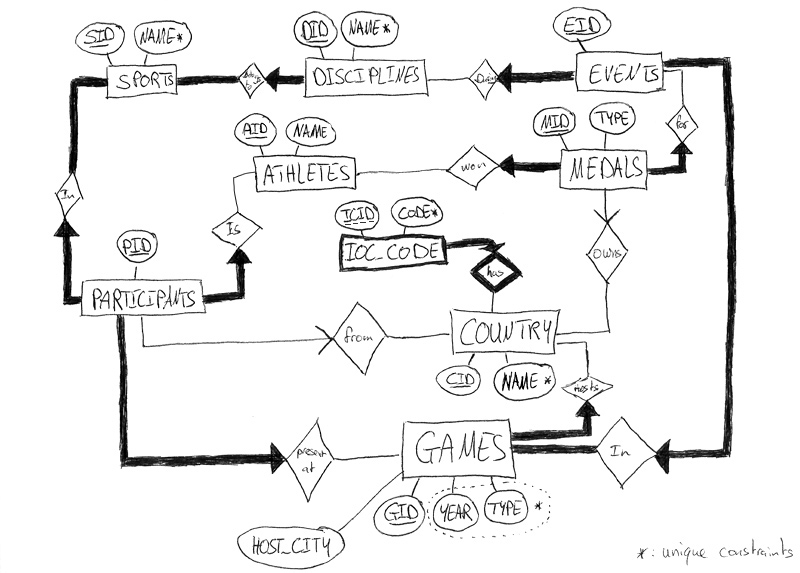 SID NAME*
SPORTS
DID NAME*
DISCIPLINES
EID
EVENTS
AID NAME
ATHLETES
won
MID TYPE
MEDALS
for
In
Is
ICID CODE*
IOC_CODE
has
Owns
PID
PARTICIPANTS
from
COUNTRY
CID NAME *
Hosts
present
at
GAMES
In
GID YEAR TYPE *
HOST_CITY
*: unique constraints